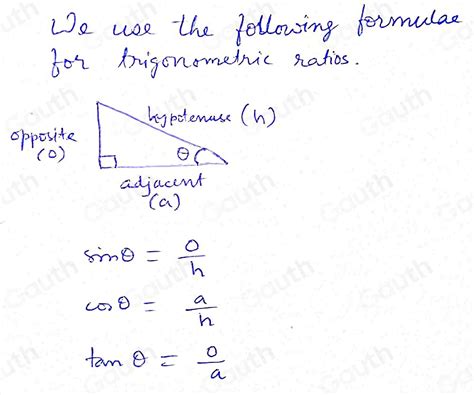 We use the following formulae
for trigonometric ratios.
hypotenuse (h)
opposite
(o)
θ
adjacent
(a)
sinθ = o/h
cosθ = a/h
tan θ = o/a